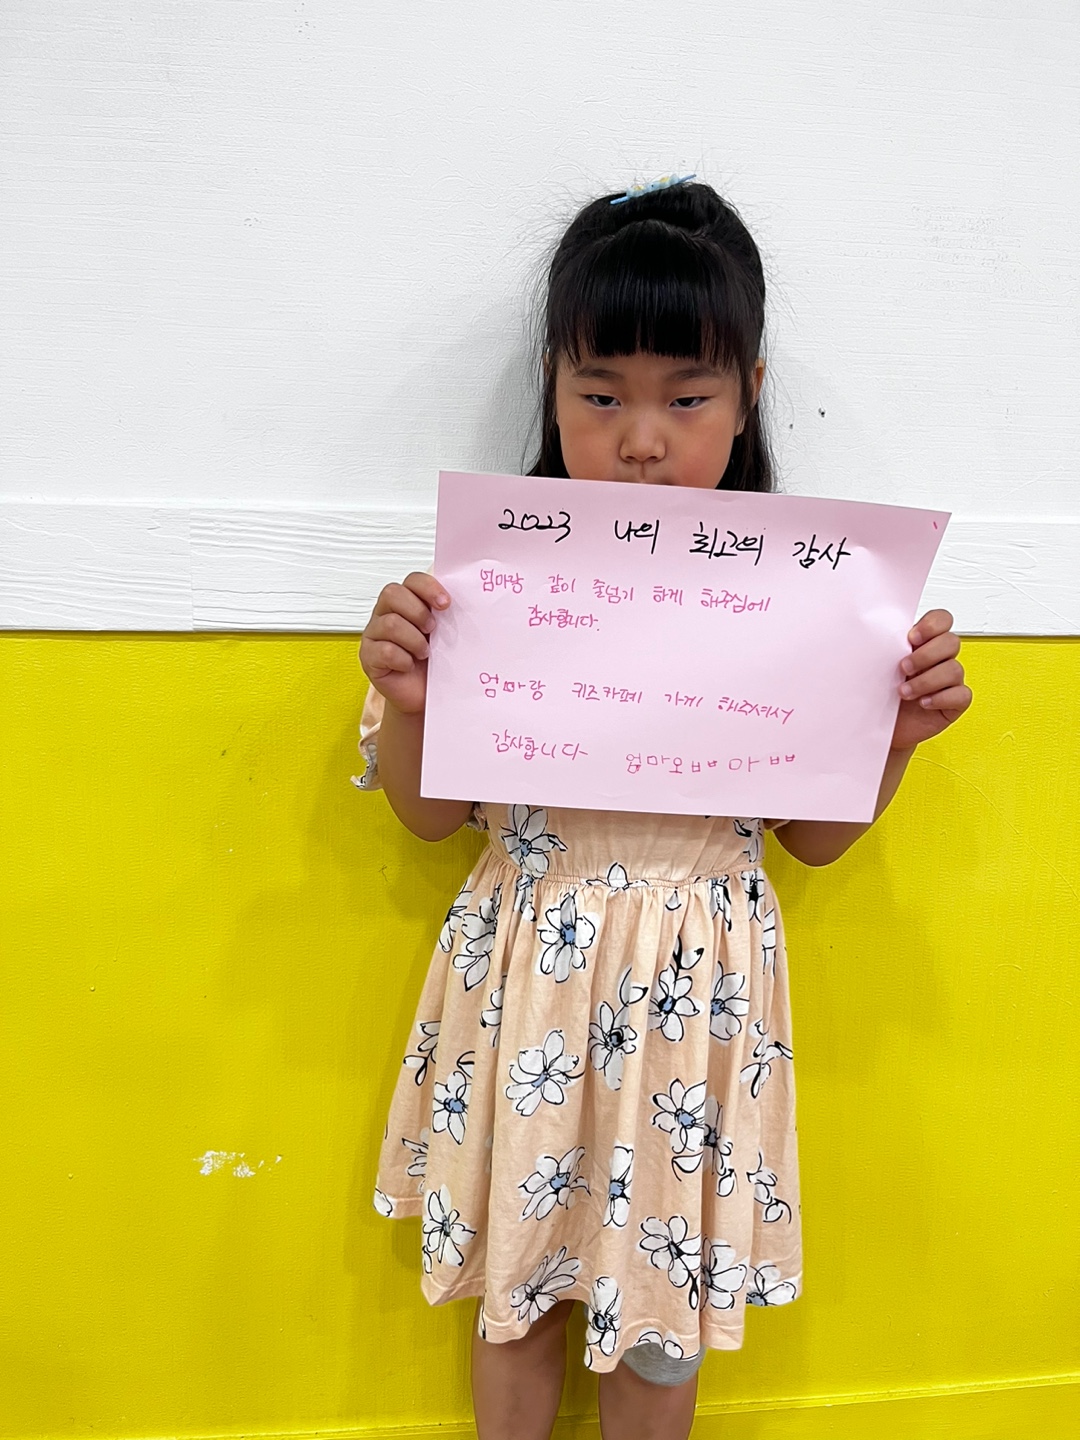 2023 나의 최고의 감사
엄마랑 같이 줄넘기 하게 해주심에
감사합니다.
엄마랑 키즈카페 가게 해주셔서
감사합니다 엄마오ㅂㅂ 아ㅂㅂ